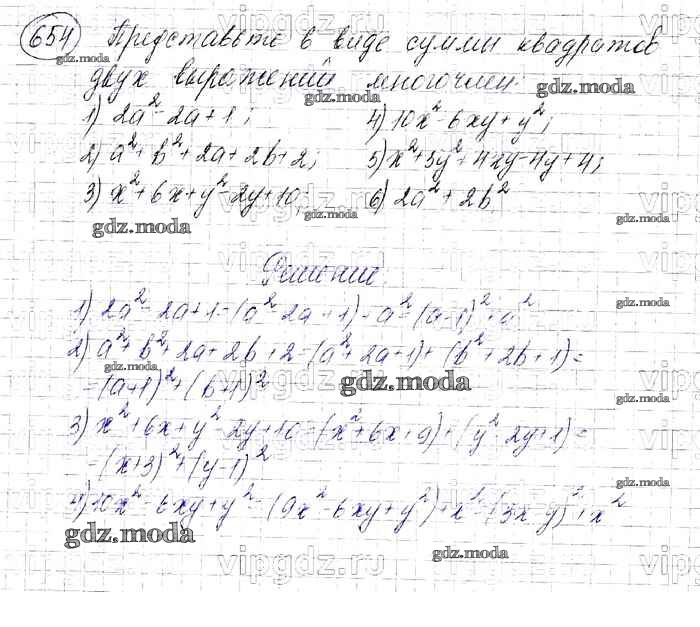 654 Представьте в виде суммы квадратов
двух выражений многочлен:
1) 2a² - 2a + 1; 4) 10x² - 6xy + y²;
2) a² + b² + 2a + 2b + 2; 5) x² + 5y² + 4xy - 4y + 4;
3) x² + 6x + y² - 2y + 10; 6) 2a² + 2b²
Решение.
1) 2a² - 2a + 1 = (a² - 2a + 1) + a² = (a - 1)² + a²
2) a² + b² + 2a + 2b + 2 = (a² + 2a + 1) + (b² + 2b + 1) =
= (a + 1)² + (b + 1)²
3) x² + 6x + y² - 2y + 10 = (x² + 6x + 9) + (y² - 2y + 1) =
= (x + 3)² + (y - 1)²
4) 10x² - 6xy + y² = (9x² - 6xy + y²) + x² = (3x - y)² + x²
gdz.moda
vipgdz.ru